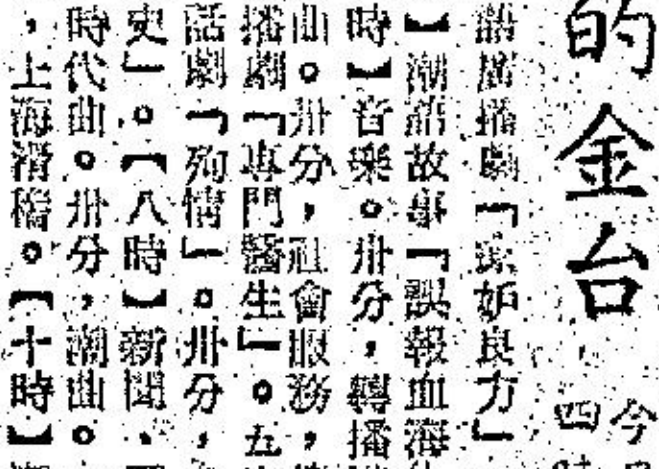 的金台
今
四
語廣播劇「妒良方」
】潮語故事「誤報血海
時】音樂。卅分，轉播
曲。卅分，社會服務，
播劇「專門醫生」。五
話劇「殉情」。卅分，
史」。【八時】新聞、
時代曲。卅分，潮曲。
，上海滑稽。【十時】